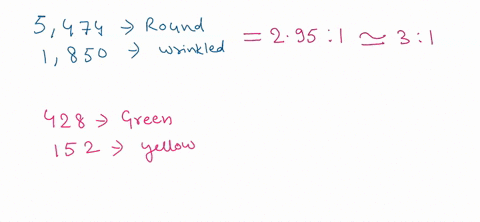 5,474 → Round
1,850 → wrinkled = 2.95 : 1 ≃ 3 : 1
428 → Green
152 → yellow